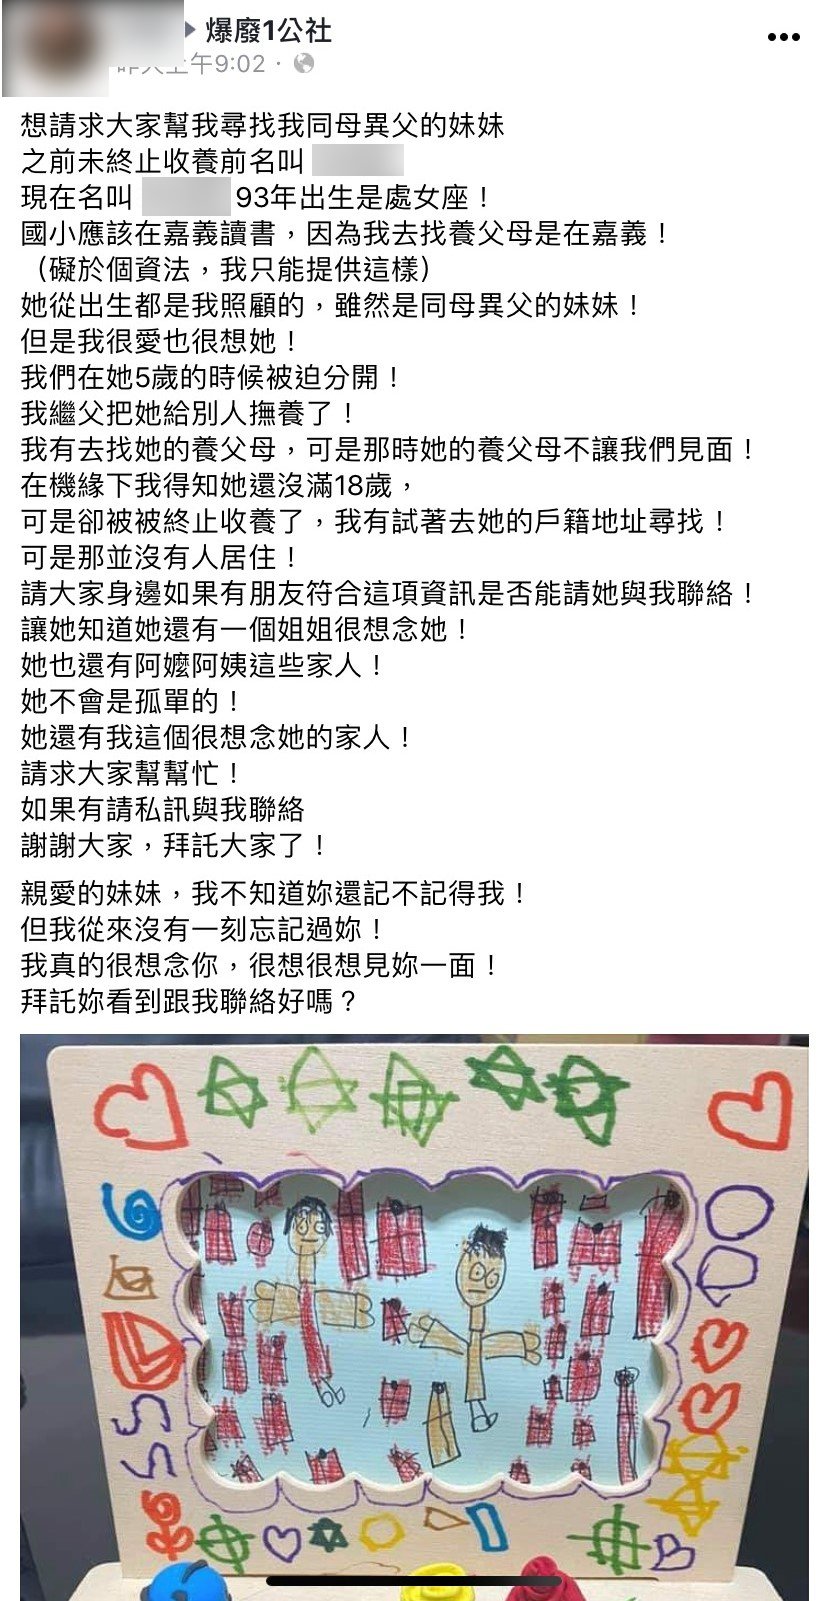 爆廢1公社
昨天上午9:02
想請求大家幫我尋找我同母異父的妹妹
之前未終止收養前名叫
現在名叫 93年出生是處女座！
國小應該在嘉義讀書，因為我去找養父母是在嘉義！
（礙於個資法，我只能提供這樣）
她從出生都是我照顧的，雖然是同母異父的妹妹！
但是我很愛也很想她！
我們在她5歲的時候被迫分開！
我繼父把她給別人撫養了！
我有去找她的養父母，可是那時她的養父母不讓我們見面！
在機緣下我得知她還沒滿18歲，
可是卻被被終止收養了，我有試著去她的戶籍地址尋找！
可是那並沒有人居住！
請大家身邊如果有朋友符合這項資訊是否能請她與我聯絡！
讓她知道她還有一個姐姐很想念她！
她也還有阿嬤阿姨這些家人！
她不會是孤單的！
她還有我這個很想念她的家人！
請求大家幫幫忙！
如果有請私訊與我聯絡
謝謝大家，拜託大家了！
親愛的妹妹，我不知道妳還記不記得我！
但我從來沒有一刻忘記過妳！
我真的很想念你，很想很想見妳一面！
拜託妳看到跟我聯絡好嗎？